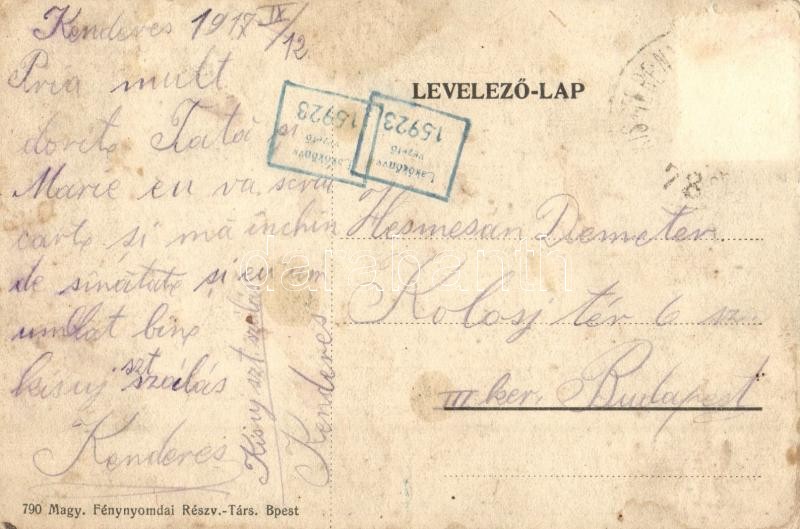 Kenderes 1917 IX/12
Pria mult
dorite Tată si
Marie eu va scriu
carte si mă inchin
de sînătate si eu am
umblat bine
kisuj szt szálás
Kenderes
Kisuj szt szálás
Kenderes
LEVELEZŐ-LAP
Lakókönyv
vezető
15923
Lakókönyv
vezető
15923
78
Hesmesán Demeter
Kolosj tér 6 sz.
III ker. Budapest
darabanth
790 Magy. Fénynyomdai Részv.-Társ. Bpest